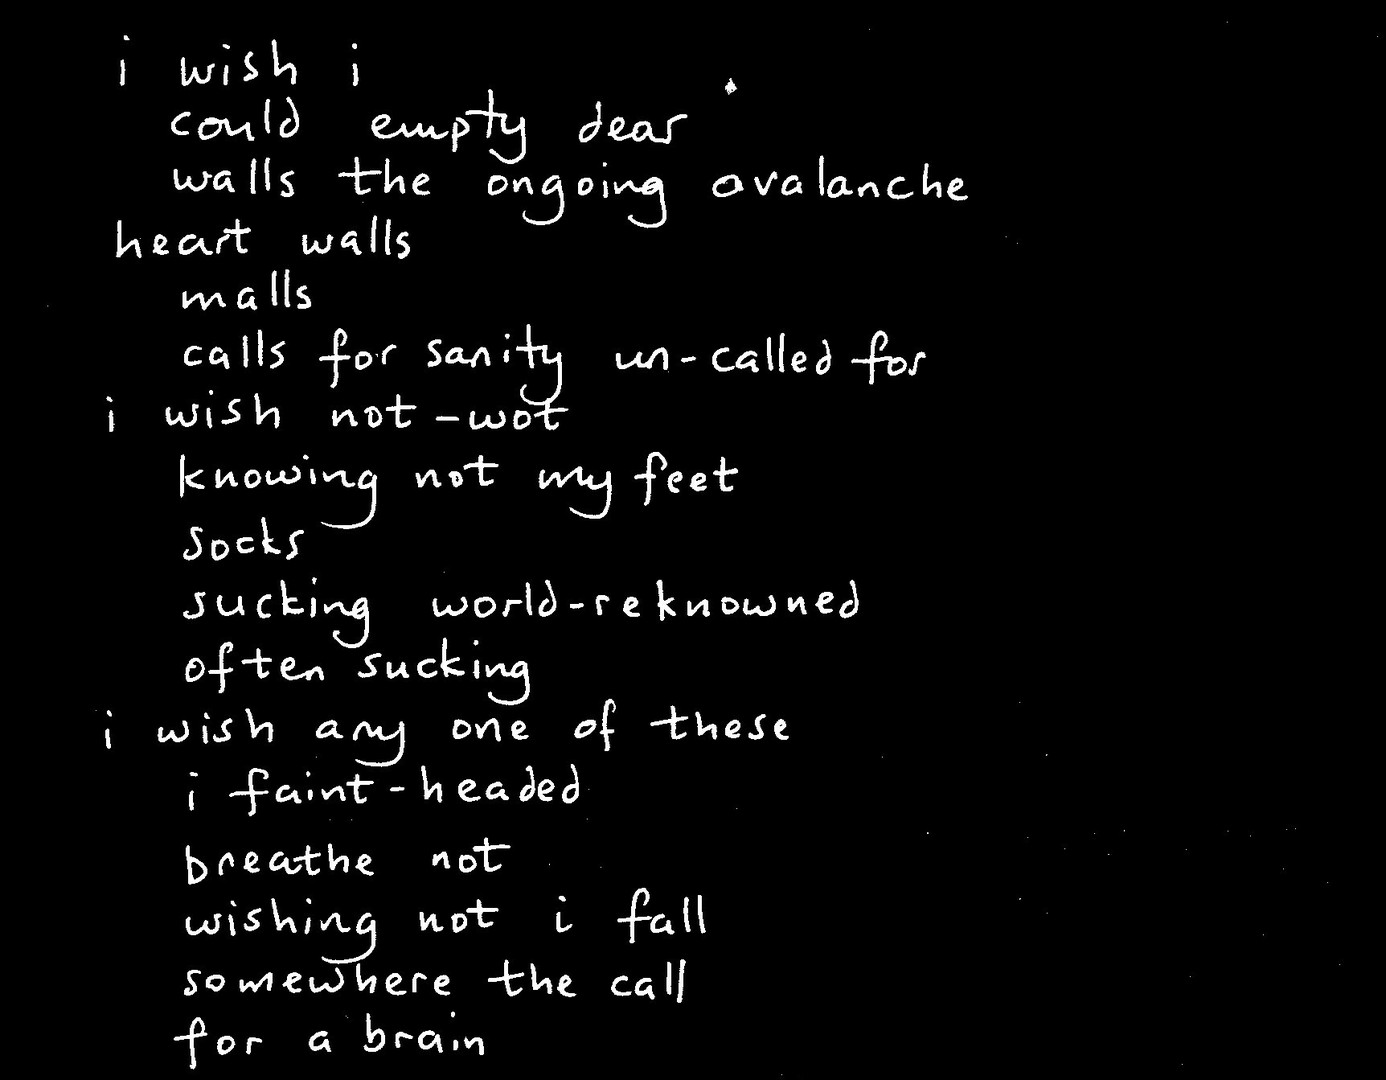 i wish i
could empty dear
walls the ongoing avalanche
heart walls
malls
calls for sanity un-called for
i wish not-wot
knowing not my feet
socks
sucking world-reknowned
often sucking
i wish any one of these
i faint-headed
breathe not
wishing not i fall
somewhere the call
for a brain